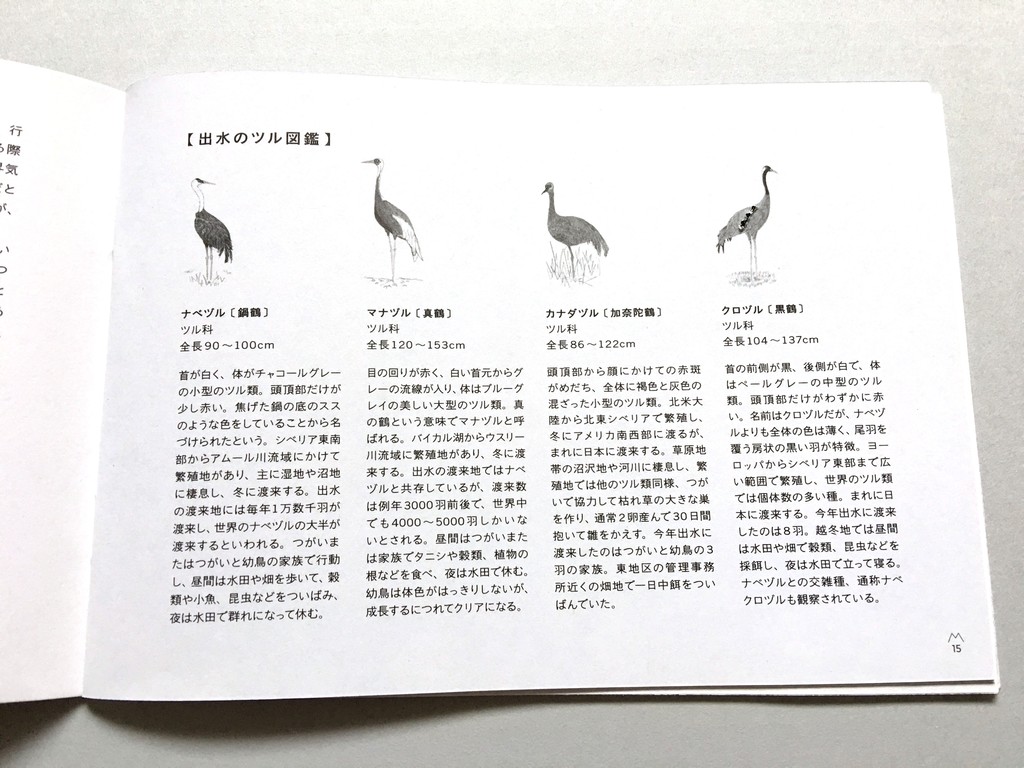 行
際
気
と
が、
い
つ
と
【出水のツル図鑑】
ナベヅル〔鍋鶴〕
ツル科
全長90〜100cm
首が白く、体がチャコールグレー
の小型のツル類。頭頂部だけが
少し赤い。焦げた鍋の底のスス
のような色をしていることから名
づけられたという。シベリア東南
部からアムール川流域にかけて
繁殖地があり、主に湿地や沼地
に棲息し、冬に渡来する。出水
の渡来地には毎年1万数千羽が
渡来し、世界のナベヅルの大半が
渡来するといわれる。つがいま
たはつがいと幼鳥の家族で行動
し、昼間は水田や畑を歩いて、穀
類や小魚、昆虫などをついばみ、
夜は水田で群れになって休む。
マナヅル〔真鶴〕
ツル科
全長120〜153cm
目の回りが赤く、白い首元からグ
レーの流線が入り、体はブルーグ
レイの美しい大型のツル類。真
の鶴という意味でマナヅルと呼
ばれる。バイカル湖からウスリー
川流域に繁殖地があり、冬に渡
来する。出水の渡来地ではナベ
ヅルと共存しているが、渡来数
は例年3000羽前後で、世界中
でも4000〜5000羽しかいな
いとされる。昼間はつがいまた
は家族でタニシや穀類、植物の
根などを食べ、夜は水田で休む。
幼鳥は体色がはっきりしないが、
成長するにつれてクリアになる。
カナダヅル〔加奈陀鶴〕
ツル科
全長86〜122cm
頭頂部から顔にかけての赤斑
がめだち、全体に褐色と灰色の
混ざった小型のツル類。北米大
陸から北東シベリアで繁殖し、
冬にアメリカ南西部に渡るが、
まれに日本に渡来する。草原地
帯の沼沢地や河川に棲息し、繁
殖地では他のツル類同様、つが
いで協力して枯れ草の大きな巣
を作り、通常2卵産んで30日間
抱いて雛をかえす。今年出水に
渡来したのはつがいと幼鳥の3
羽の家族。東地区の管理事務
所近くの畑地で一日中餌をつい
ばんでいた。
クロヅル〔黒鶴〕
ツル科
全長104〜137cm
首の前側が黒、後側が白で、体
はペールグレーの中型のツル
類。頭頂部だけがわずかに赤
い。名前はクロヅルだが、ナベヅ
ルよりも全体の色は薄く、尾羽を
覆う房状の黒い羽が特徴。ヨー
ロッパからシベリア東部まで広
い範囲で繁殖し、世界のツル類
では個体数の多い種。まれに日
本に渡来する。今年出水に渡来
したのは8羽。越冬地では昼間
は水田や畑で穀類、昆虫などを
採餌し、夜は水田で立って寝る。
ナベヅルとの交雑種、通称ナベ
クロヅルも観察されている。
15